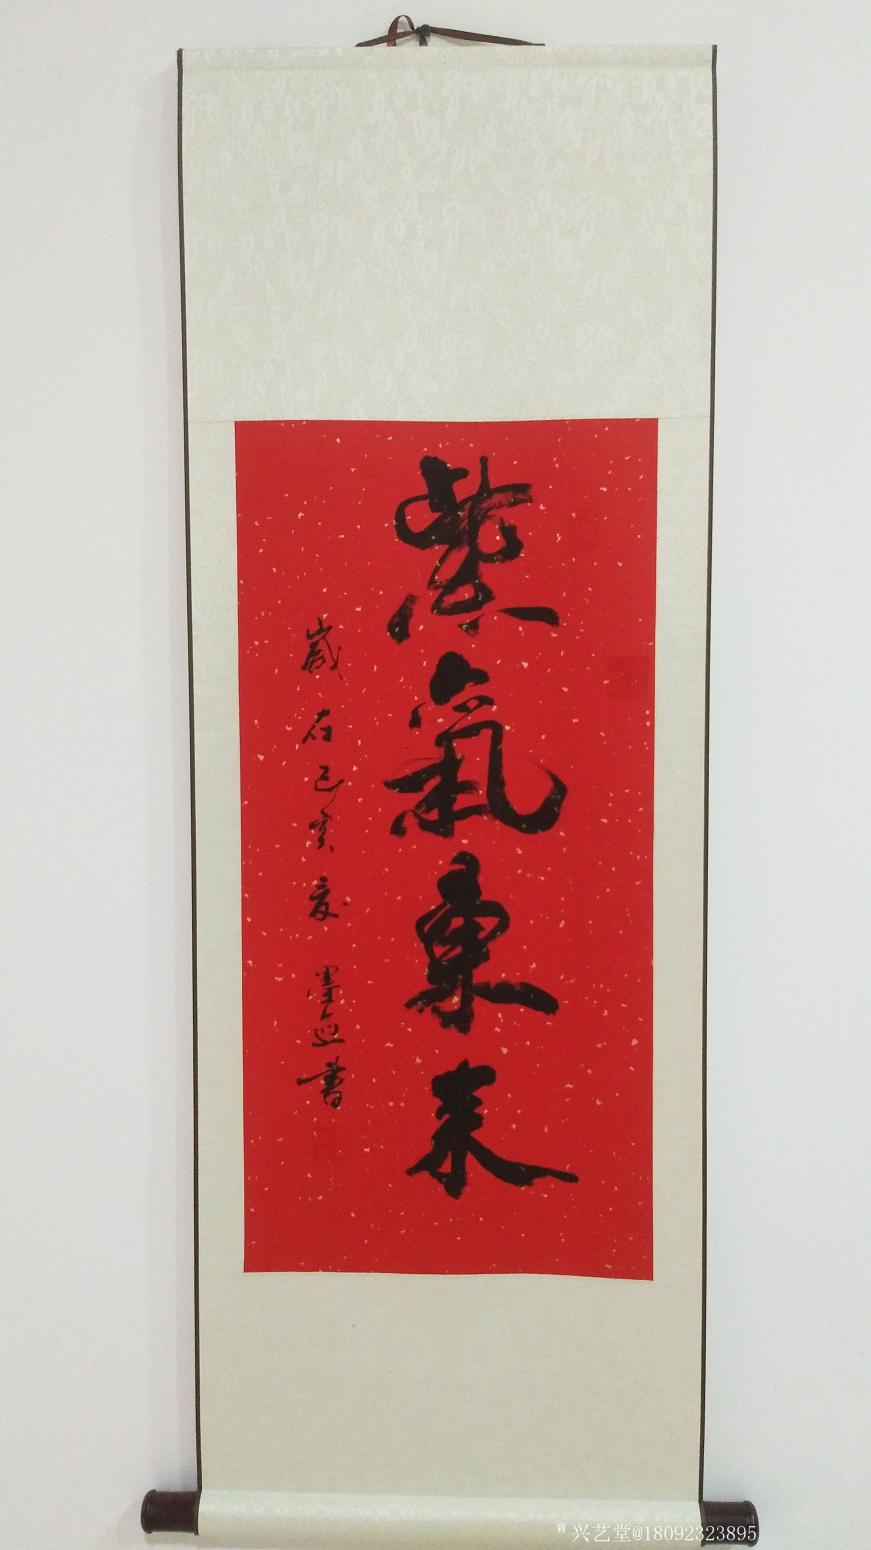 紫氣東來
歲在己亥夏 墨
書
兴艺堂@18092323895